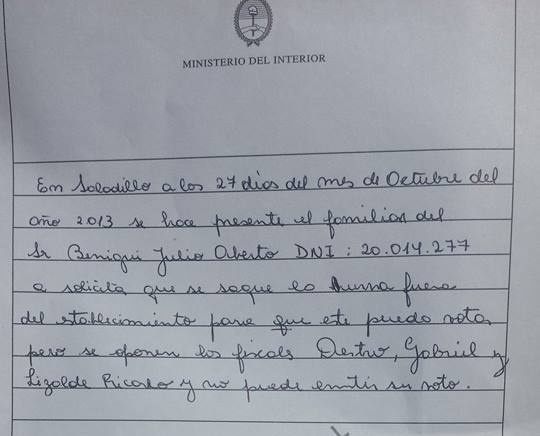 MINISTERIO DEL INTERIOR
En Saladillo a los 27 dias del mes de Octubre del
año 2013 se hace presente el familiar del
Sr Benigui Julio Oberto DNI : 20.014.277
a solicita que se saque la urna fuera
del establecimiento para que este pueda votar,
pero se oponen los fiscals Destro, Gabriel y
Lizalde Ricardo y no puede emitir su voto.